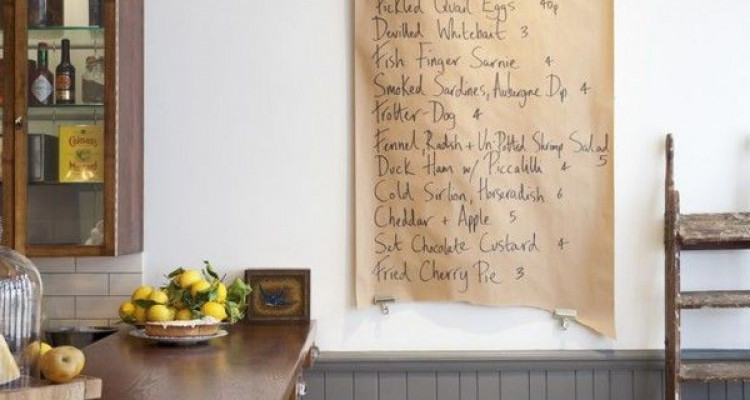 Pickled Quail Eggs 40p
Devilled Whitebait 3
Fish Finger Sarnie 4
Smoked Sardines, Aubergine Dip 4
Trotter-Dog 4
Fennel, Radish + Un-Potted Shrimp Salad 5
Duck Ham w/ Piccalilli 4
Cold Sirlion, Horseradish 6
Cheddar + Apple 5
Set Chocolate Custard 4
Fried Cherry Pie 3
Colman's
Mustard